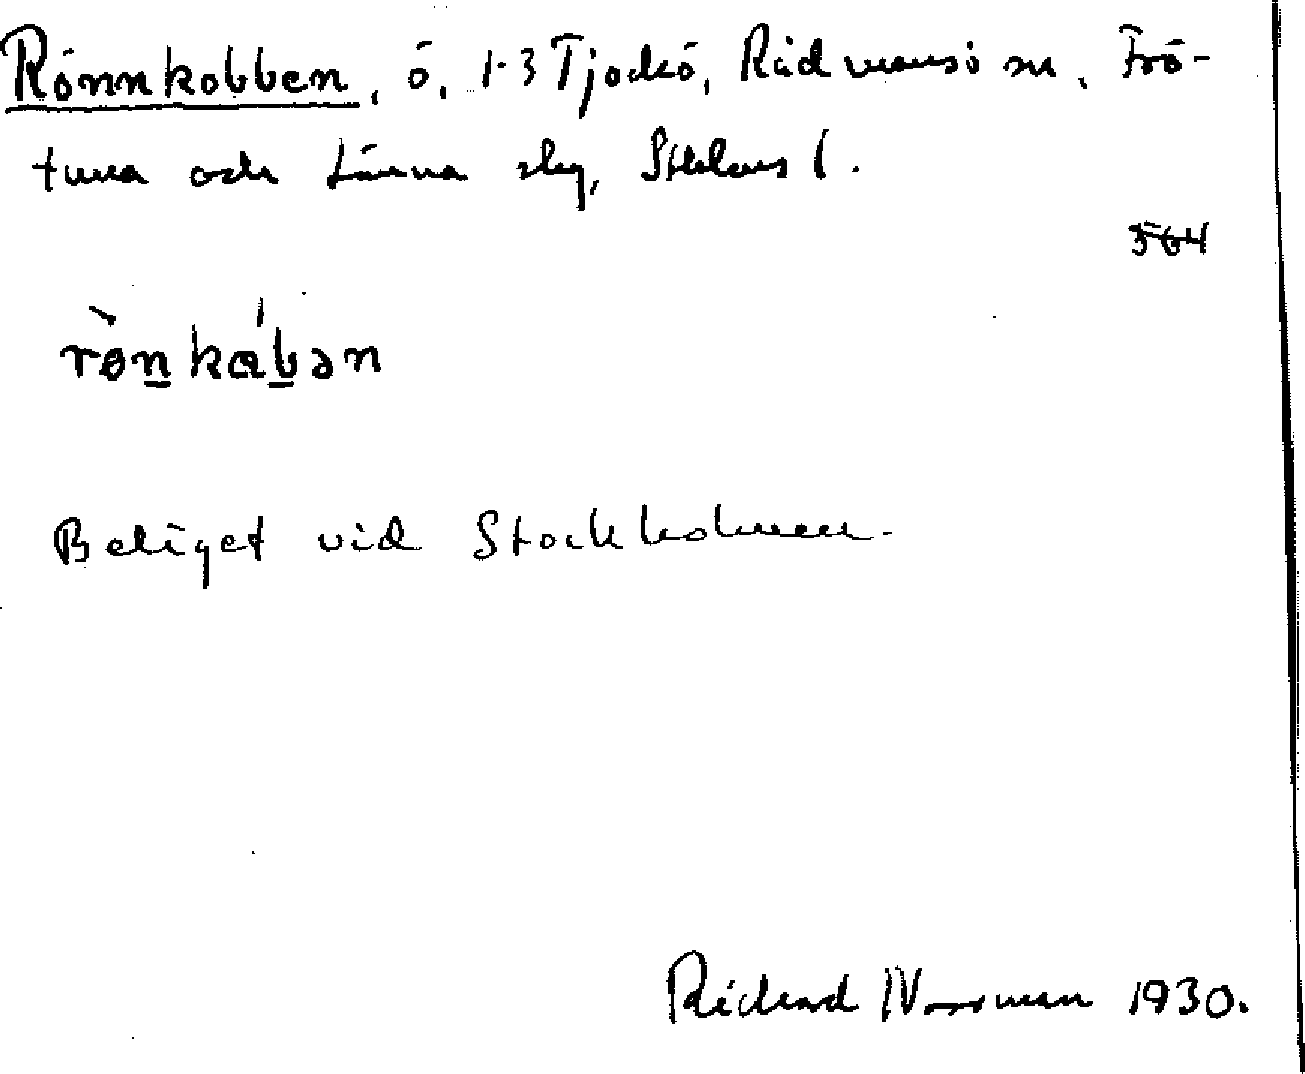 Rönnkobben, ö, 1-3 Tjockö, Rådmansö sn, Frö-
tuna och Länna skg, Sthlms l.
564
rø̀nkábən
Beläget vid Stockholmen.
Richard Norrman 1930.